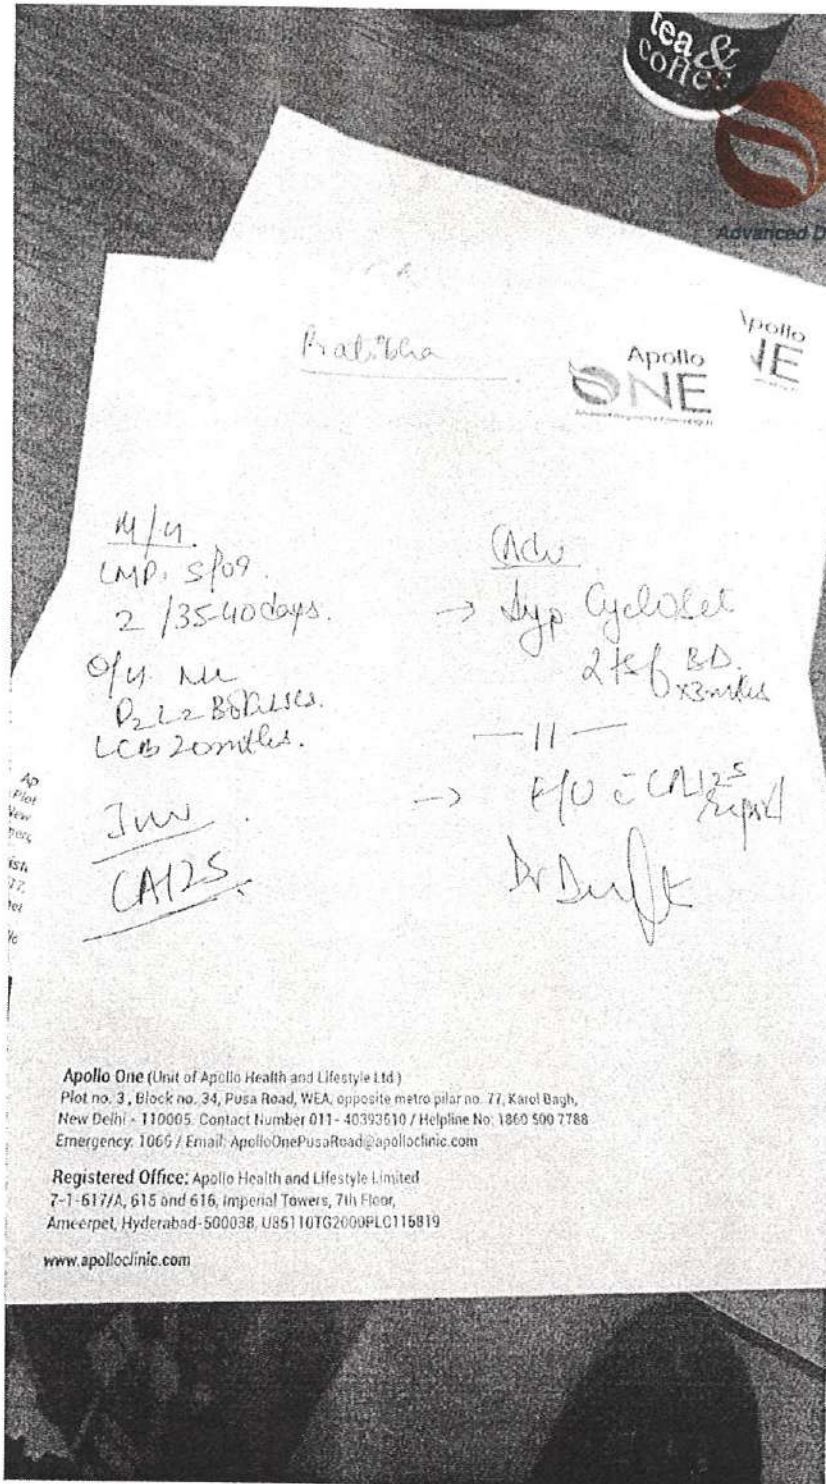 tea &
coffee
Advanced D
Apollo
ONE
Apollo
NE
Pratibha
M/H
LMP. 5/09.
2 /35-40 days.
O/H
P2L2
LCB 20mths.
Inv
CA125
Adv
→ Syp Cycloset
2tsf BD.
x3mths
— 11 —
→ F/U c̄ CA125
report
Dr
Apollo One (Unit of Apollo Health and Lifestyle Ltd.)
Plot no. 3, Block no. 34, Pusa Road, WEA, opposite metro pilar no. 77, Karol Bagh,
New Delhi - 110005. Contact Number 011- 40393610 / Helpline No: 1860 500 7788
Emergency: 1066 / Email: ApolloOnePusaRoad@apolloclinic.com
Registered Office: Apollo Health and Lifestyle Limited
7-1-617/A, 615 and 616, Imperial Towers, 7th Floor,
Ameerpet, Hyderabad-500038, U85110TG2000PLC115819
www.apolloclinic.com